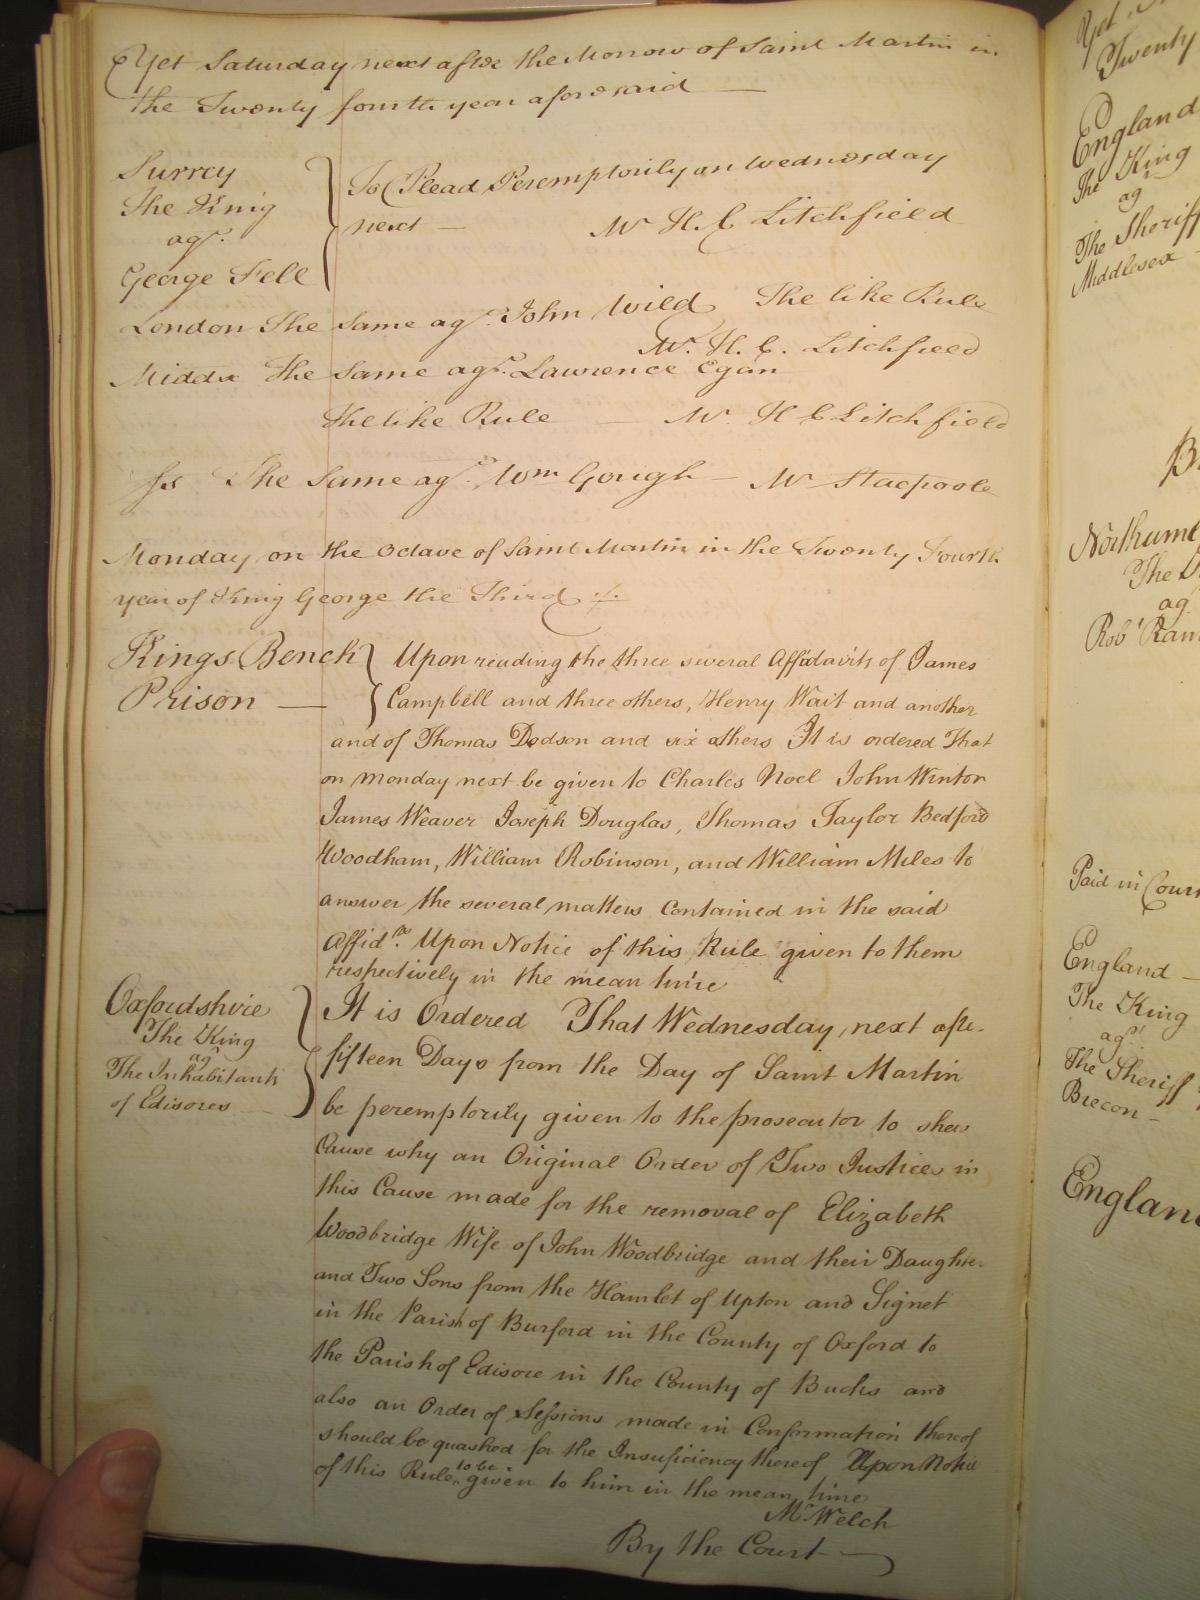 Yet Saturday next after the Morrow of Saint Martin in
the Twenty fourth year aforesaid —
Surrey
The King
agt.
George Fell
To Plead Peremptorily on Wednesday
next — Mr H. C Litchfield
London The Same agt. John Wild The like Rule
Mr. H. C. Litchfield
Middx The Same agt. Lawrence Egan
The like Rule — Mr H C Litchfield
The Same agt. Wm Gough — Mr Stacpoole
Monday on the Octave of Saint Martin in the Twenty Fourth
year of King George the Third
Kings Bench
Prison —
Upon reading the three several Affidavits of James
Campbell and three others, Henry Wait and another
and of Thomas Dodson and six others It is ordered That
on Monday next be given to Charles Noel John Winter
James Weaver Joseph Douglas, Thomas Taylor Bedford
Woodham, William Robinson, and William Miles to
answer the several matters contained in the said
Affidts. Upon Notice of this Rule given to them
respectively in the mean time
Oxfordshire
The King
agt
The Inhabitants
of Edisores —
It is Ordered That Wednesday next after
fifteen Days from the Day of Saint Martin
be peremptorily given to the prosecutor to shew
Cause why an Original Order of Two Justices in
this Cause made for the removal of Elizabeth
Woodbridge Wife of John Woodbridge and their Daughter
and Two Sons from the Hamlet of Upton and Signet
in the Parish of Burford in the County of Oxford to
the Parish of Edisore in the County of Bucks and
also an Order of Sessions made in Confirmation thereof
should be quashed for the Insuficiency thereof Upon Notice
of this Rule to be given to him in the mean time
Mr Welch
By the Court —
Yet
Twenty
England
The King
ag
The Sheriff
Middlesex
Northuml
The
agt
Robt Ran
Paid in Court
England —
The King
agt.
The Sheriff
Brecon —
England